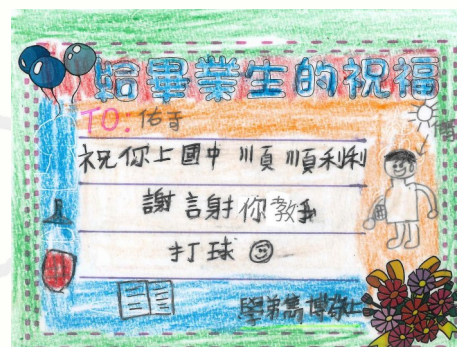 給畢業生的祝福
TO: 佑奇
祝你上國中順順利利
謝謝你教我
打球☺
學弟雋博敬上